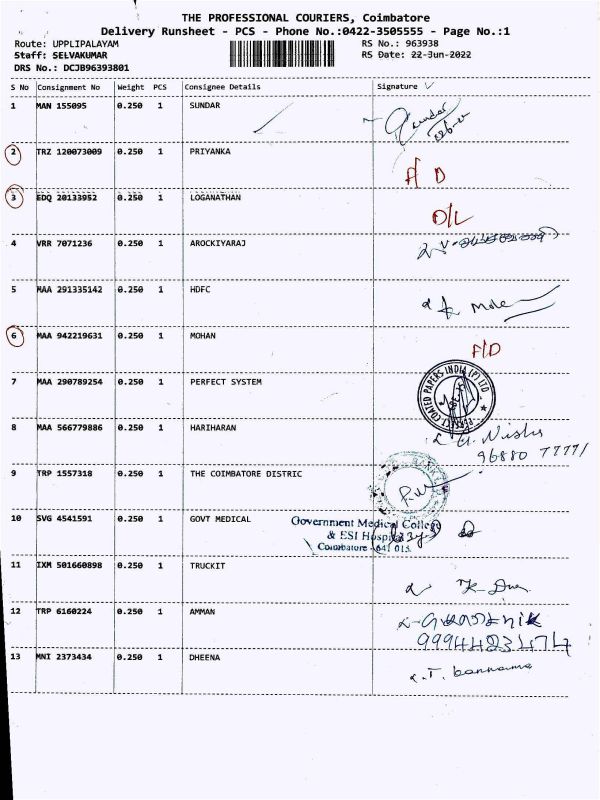 THE PROFESSIONAL COURIERS, Coimbatore
Delivery Runsheet - PCS - Phone No.:0422-3505555 - Page No.:1
Route: UPPLIPALAYAM
RS No.: 963938
Staff: SELVAKUMAR
RS Date: 22-Jun-2022
DRS No.: DCJB96393801
S No Consignment No Weight PCS Consignee Details Signature
1 MAN 155095 0.250 1 SUNDAR Sundar
2 TRZ 120073009 0.250 1 PRIYANKA
3 EDQ 20133952 0.250 1 LOGANATHAN O/L
4 VRR 7071236 0.250 1 AROCKIYARAJ
5 MAA 291335142 0.250 1 HDFC
6 MAA 942219631 0.250 1 MOHAN F/D
7 MAA 290789254 0.250 1 PERFECT SYSTEM
PERFECT COATED PAPERS INDIA (P) LTD.
8 MAA 566779886 0.250 1 HARIHARAN
96880 77771
9 TRP 1557318 0.250 1 THE COIMBATORE DISTRIC
10 SVG 4541591 0.250 1 GOVT MEDICAL
Government Medical College
& ESI Hospital
Coimbatore - 641 015
11 IXM 501660898 0.250 1 TRUCKIT
12 TRP 6160224 0.250 1 AMMAN
9994423474
13 MNI 2373434 0.250 1 DHEENA